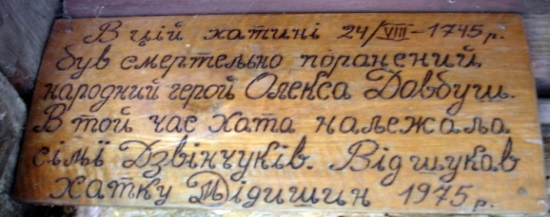 В цій хатині 24/VIII-1745 р.
був смертельно поранений
народний герой Олекса Довбуш.
В той час хата належала
сімї Дзвінчуків. Відшукав
хатку Дідишин 1975 р.